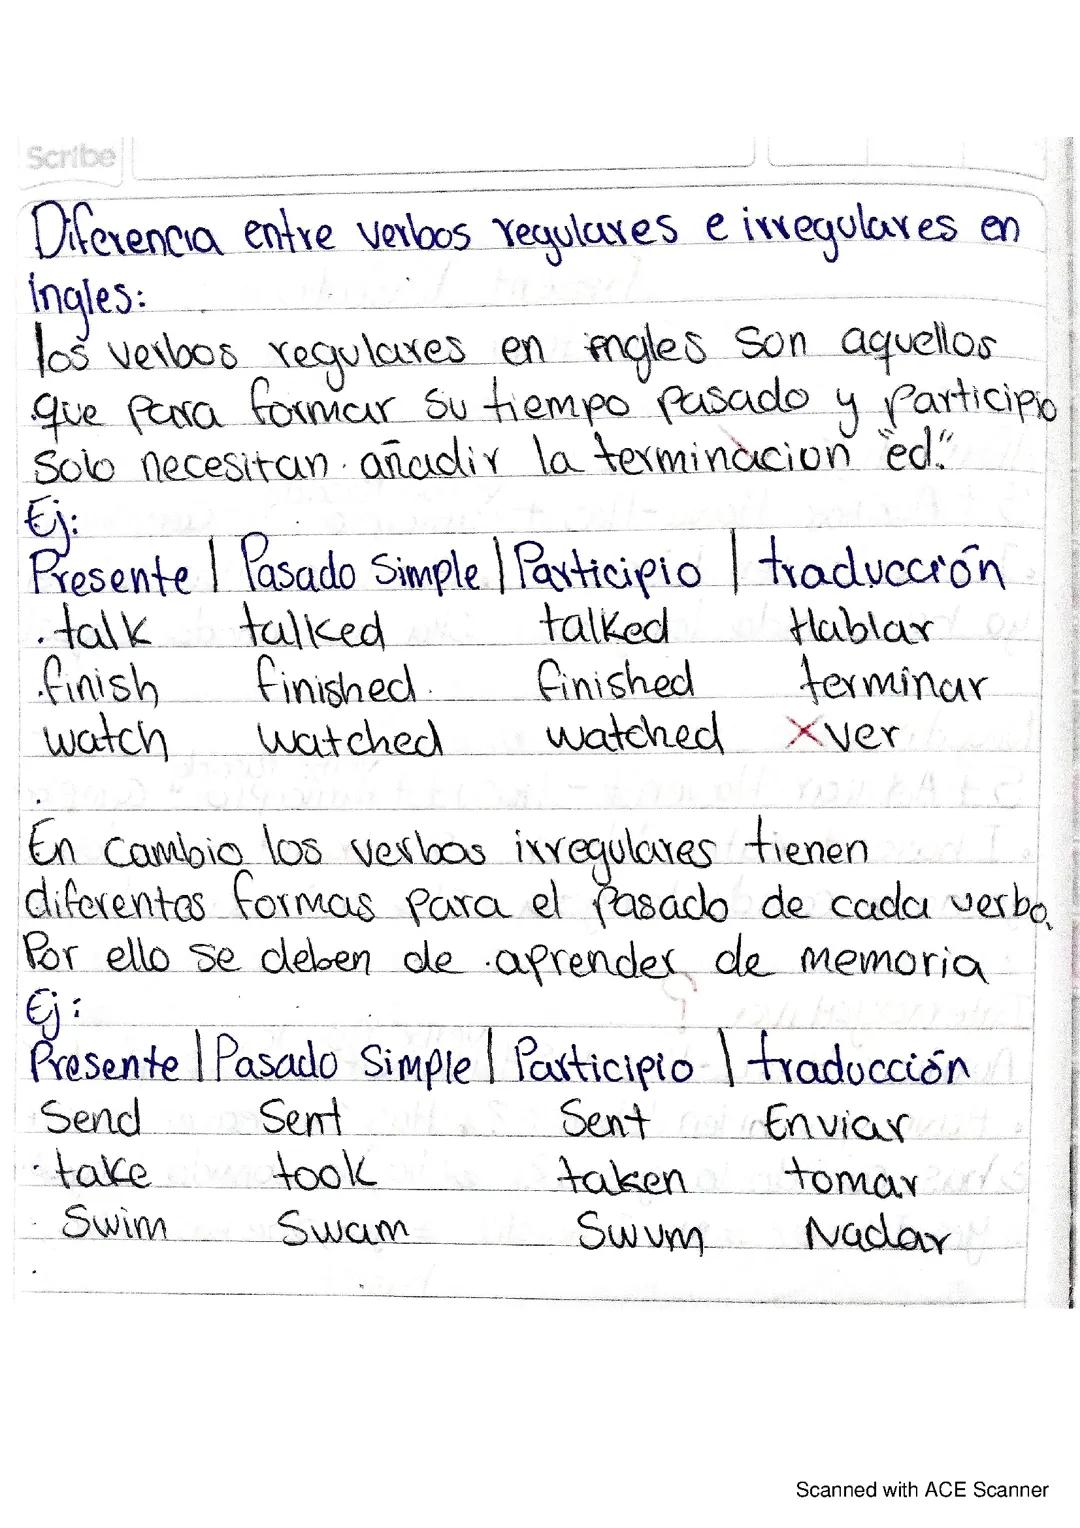 Scribe
Diferencia entre verbos regulares e irregulares en
ingles:
los verbos regulares en ingles son aquellos
que para formar su tiempo pasado y participio
solo necesitan añadir la terminacion "ed."
Ej:
Presente | Pasado Simple | Participio | traducción
talk talked talked Hablar
finish finished finished terminar
watch watched watched ver
En cambio los verbos irregulares tienen
diferentes formas para el pasado de cada verbo.
Por ello se deben de aprender de memoria
Ej:
Presente | Pasado Simple | Participio | traducción
Send Sent Sent Enviar
take took taken tomar
Swim Swam Swum Nadar
Scanned with ACE Scanner